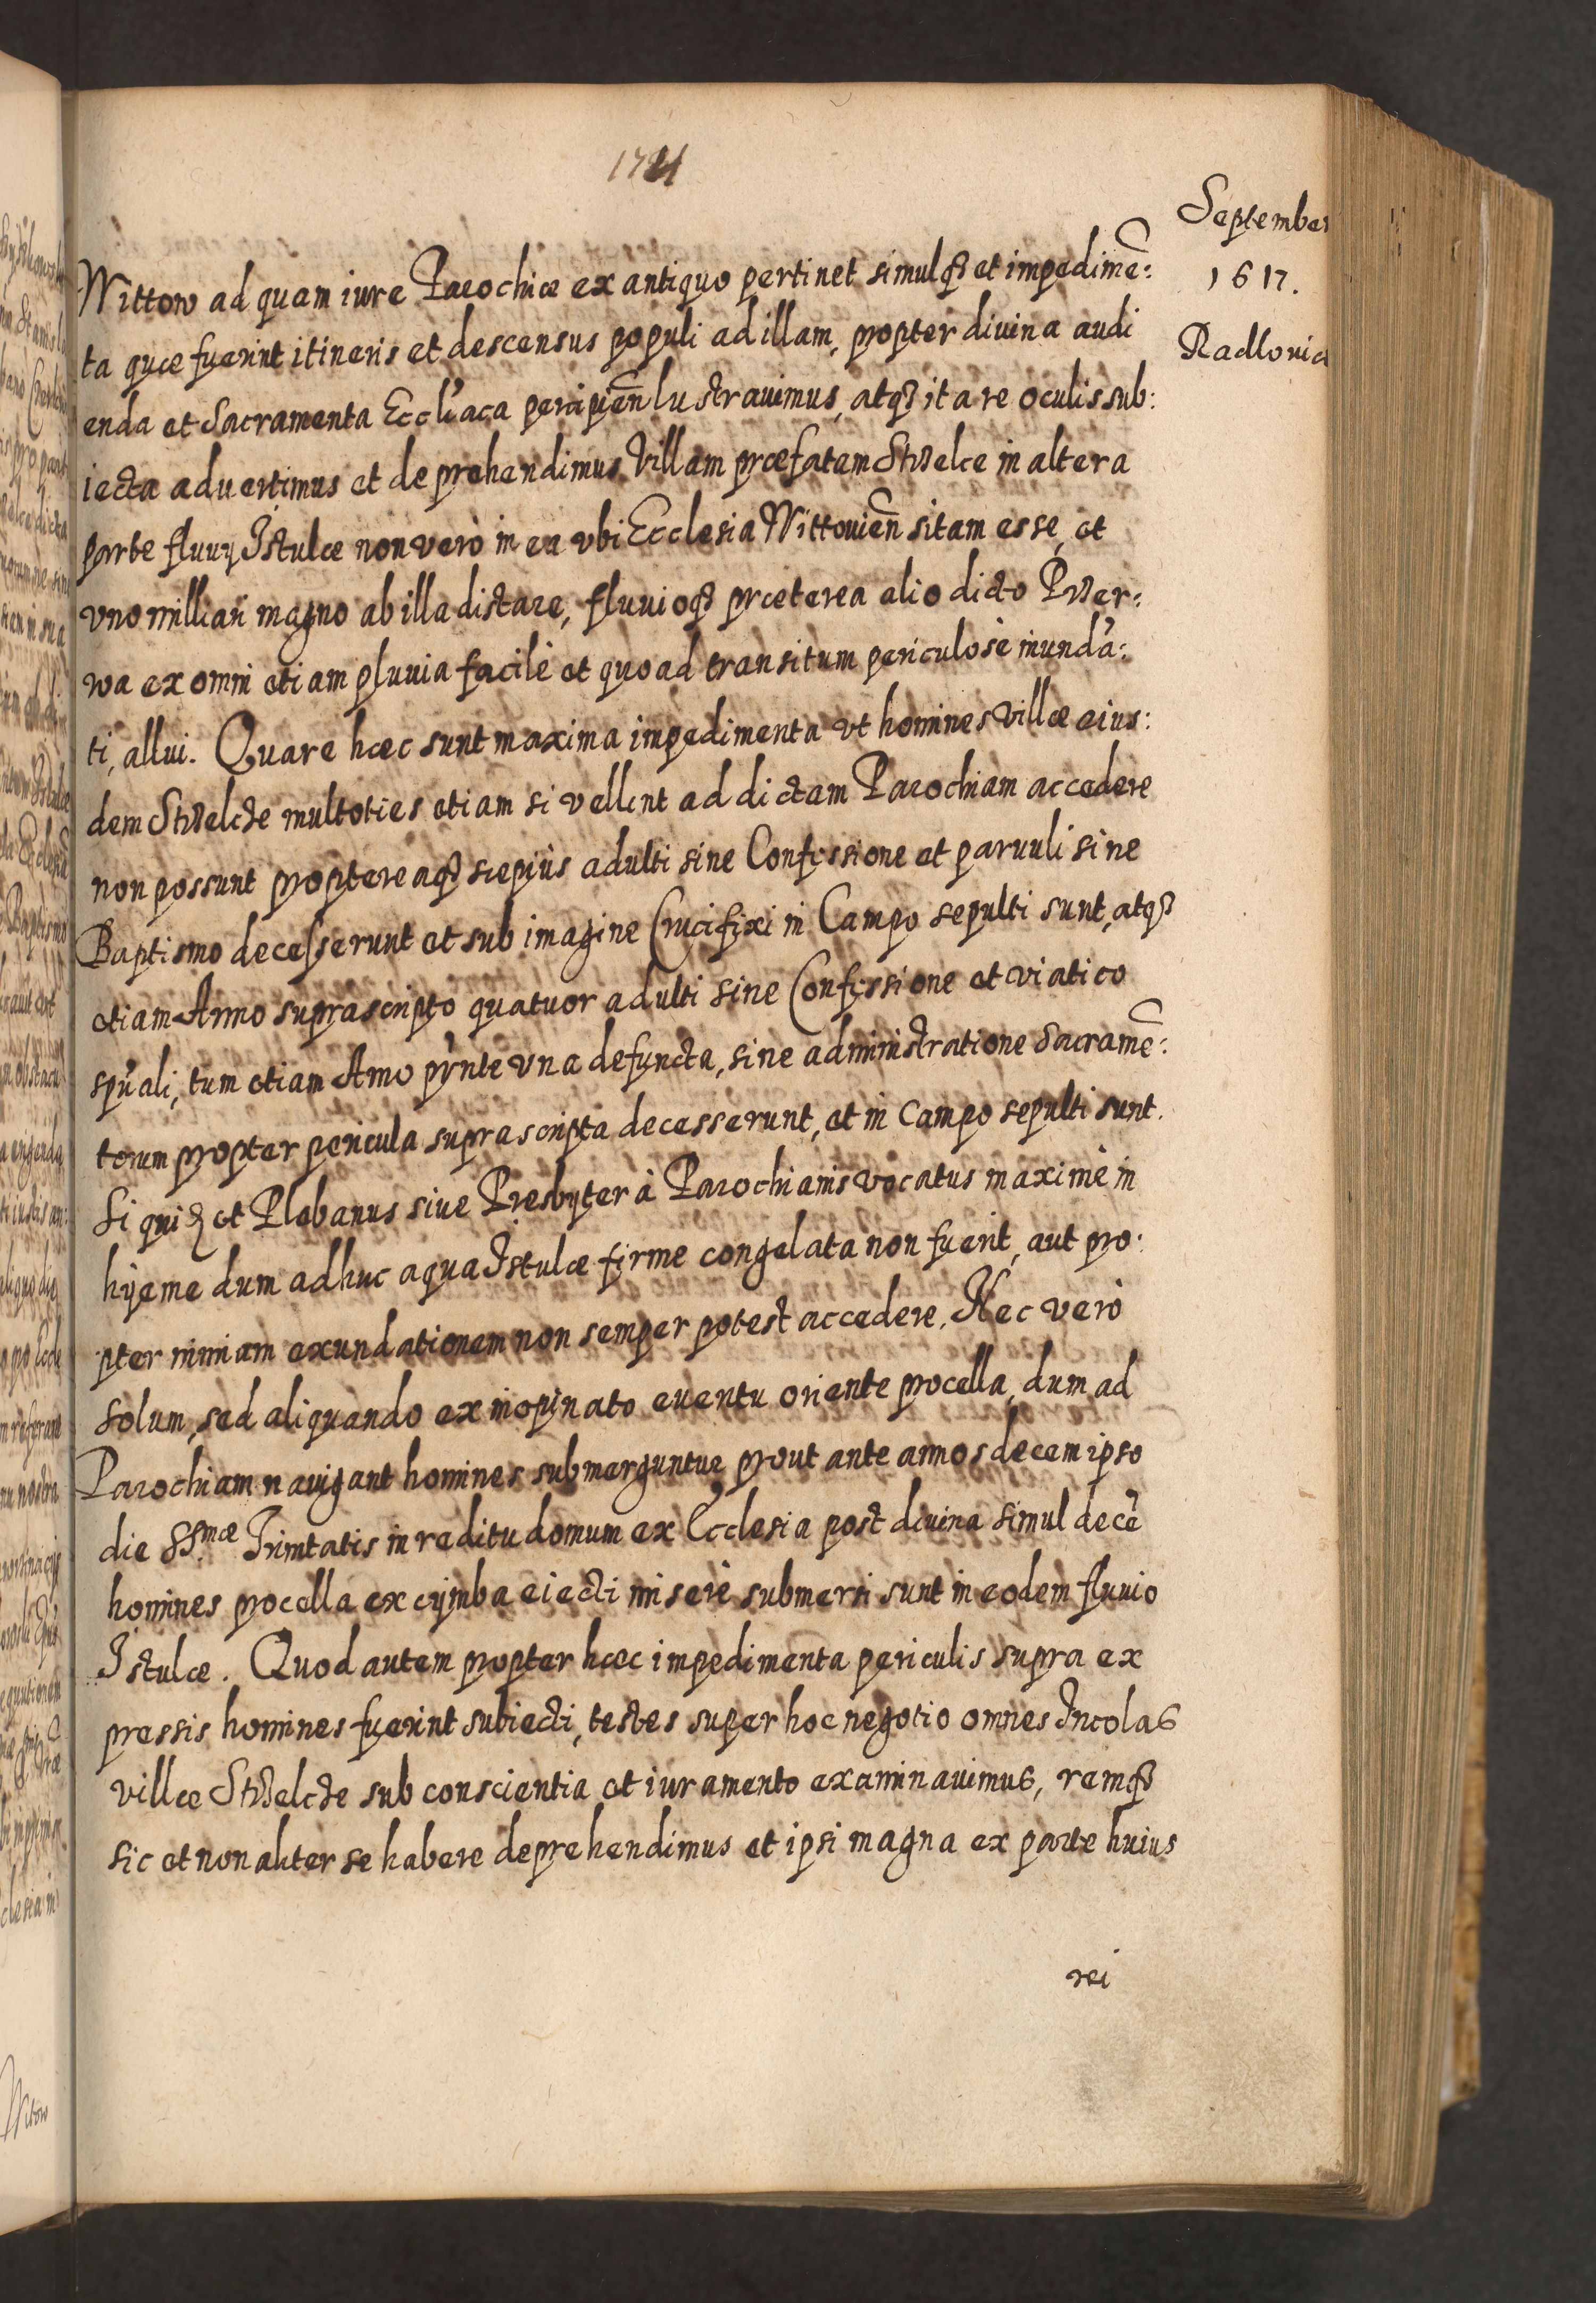 September
1617.
Radlovia
Wittow ad quam iure Parochiæ ex antiquo pertinet simulqȝ et impedimē:
ta quæ fuerint itineris et descensus populi ad illam, propter divina audi
enda et Sacramenta Eccl'aca percipien̄ lustrauimus, atqȝ ita re oculis sub:
iecta aduertimus et deprehendimus Villam præfatam Strzelce in altera
parte fluuij Istulæ non verò in ea vbi Ecclesia Wittouien̄ sitam esse, et
vno milliari magno ab illa distare, fluuioqȝ præterea alio dicto Przer:
wa ex omni etiam pluuia facilè et quo ad transitum periculosè inunda:
ti, allui. Quare hæc sunt maxima impedimenta vt homines Villæ eius:
dem Strzelcze multoties etiam si vellent ad dictam Parochiam accedere
non possunt proptereaqȝ sæpiùs adulti sine Confessione et paruuli sine
Baptismo decesserunt et sub imagine Crucifixi in Campo sepulti sunt, atqȝ
etiam Anno suprascripto quatuor adulti sine Confessione et viatico
spu'ali, tum etiam Anno pn'te vna defuncta, sine administratione Sacramē:
torum propter pericula suprascripta decesserunt, et in Campo sepulti sunt.
Siquiȝ et Plebanus siue Presbyter à Parochianis vocatus maximè in
hyeme dum adhuc aqua Istulæ firme congelata non fuerit, aut pro:
pter nimiam exundationem non semper potest accedere. Nec verò
solum, sed aliquando ex inopinato euentu oriente procella, dum ad
Parochiam nauigant homines submerguntur, prout ante annos decem ipso
die SS.mæ Trinitatis in reditu domum ex Ecclesia post diuina simul decē
homines procella ex cymba eiecti miserè submersi sunt in eodem fluuio
Istulæ. Quod autem propter hæc impedimenta periculis supra ex
pressis homines fuerint subiecti, testes super hoc negotio omnes Incolas
villæ Strzelcze sub conscientia et iuramento examinauimus, remqȝ
sic et non aliter se habere deprehendimus et ipsi magna ex parte huius
rei